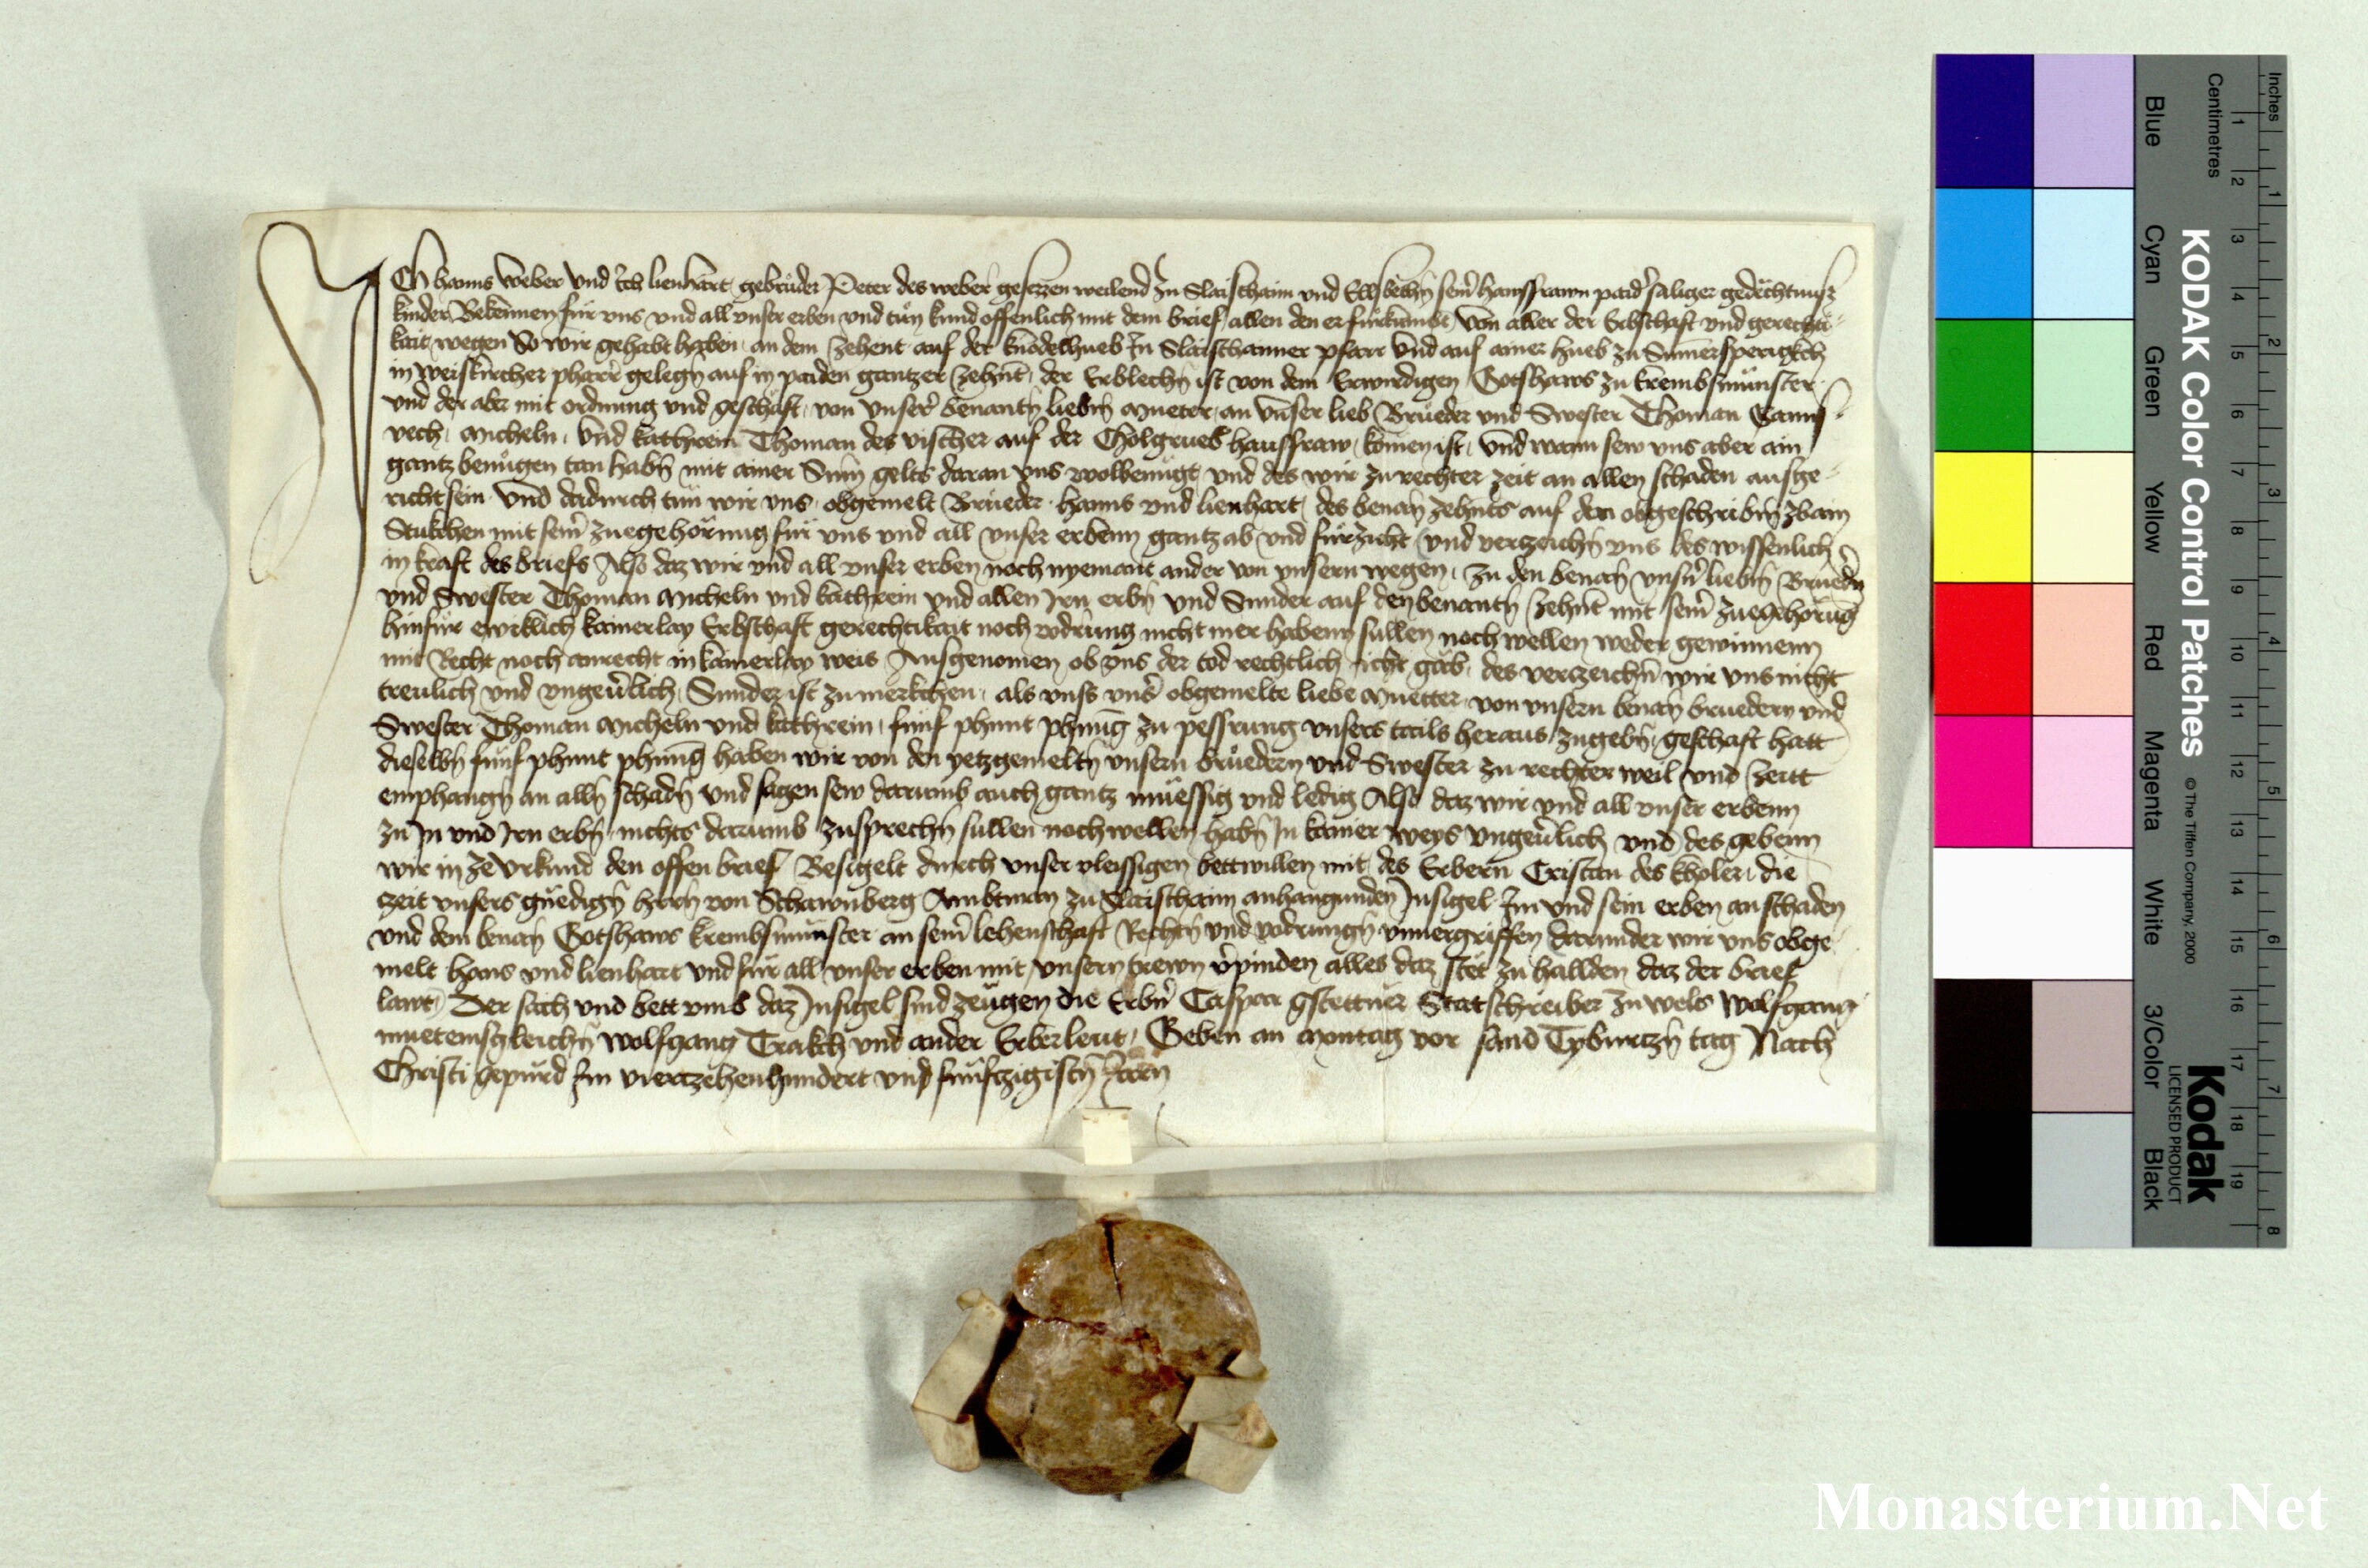 Ich hanns weber vnd ich lienhart gebrüder Peter des weber gesezzen weilend zu Slaischaim vnd Elsbethn seiner hawsfrawn paider saliger gedechtnuss
kinder Bekennen für vns vnd all vnser erben vnd tün kund offenlich mit dem brief allen den er fürkumbt von aller der Erbschaft vnd gerechti-
kait wegen So wir gehabt haben an dem zehent auf der knödelhueb In Slaischaimer pfarr vnd auf ainer hueb zu Sumersperigkch
in weiskircher pharr gelegn auf in paiden gantzer zehnt der Erblechn ist von dem Erwirdigen Gotshaws zu krembsmünster
vnd der aber mit ordnung vnd geschäft von vnser benantn liebn mueter an vnser lieb Brüeder vnd Swester Thoman
vech Micheln vnd kathrein Thoman des vischer auf der Cholgrueb hausfraw komen ist vnd wann sew vns aber ain
gantz benügen tan habn mit ainer Sum gelts daran vns wolbenügt vnd des wir zu rechter zeit an allen schaden ausge-
richt sein vnd dadurch tün wir vns obgemelt Brueder hanns vnd lienhart des benantn zehnts auf den obgeschribn zbain
Stukchen mit seim zuegehörung für vns vnd all vnser erbenn gantz ab vnd fürzicht vnd verzeichn vns des wissenlich
in kraft des briefs Also daz wir vnd all vnser erben noch nyemant ander von vnsern wegen zu den benantn vnsern liebn Bruedern
vnd Swester Thoman Micheln vnd kathrein vnd allen Irn erbn vnd Sunder auf den benantn zehnt mit seim zuegehörug
hinfür ewiklich kainerlay Erbschaft gerechtikait noch vodrung nicht mer habenn sullen noch wellen weder gewinnenn
mit Recht noch anrecht in kainerlay weis Ausgenomen ob vns der tod rechtlich icht gäb des verzeichn wir vns nicht
treulich vnd vngeuerlich Sunder ist zu merkchen als vnss vnser obgemelte liebe Muetter von vnsern benantn bruedern vnd
Swester Thoman Micheln vnd kathrein fünf phunt phnnig zu pessrung vnsers tails heraus zugebn geschaft hatt
dieselbn fünf phunt phnnig haben wir von den yetzgemeltn vnsern brüedern vnd Swester zu rechter weil vnd zeitt
emphangn an alln schadn vnd sagen sew darumb auch gantz müessig vnd ledig Also daz wir vnd all vnser erbenn
zu In vnd Irn erbn nichts darumb zusprechn sullen noch wellen habn In kainer weys vngeuerlich vnd des gebenn
wir in ze vrkund den offen brief Besigelt durch vnser vleissigen bettwillen mit des Erbern Cristan des kholer die
zeit vnsers gnedign herrn von Schawnberg Ambtman zu Slaischaim anhangunden Insigel Im vnd sein erben an schaden
vnd dem benantn Gotshaws krembsmünster an seim lehenschaft Rechtn vnd vodrungn vnuergriffen darunder wir vns obge
melt hans vnd lienhart vnd für all vnser erben mit vnsern trewn verpinden alles daz stet zu hallden daz der brief
lawt Der sach vnd bett vmb daz Insigel sind zeügen die Erbern Caspar gstettner Statschreiber zu wels Wolfgang
wolfgang Trakch vnd ander Erber leut Geben an Montag vor sand Tyburtzn tag Nach
Christi gepurd Im viertzehenhundert vnd fünftzigistn Jarn
Inches
Centimetres
KODAK Color Control Patches © The Tiffen Company, 2000
Kodak
LICENSED PRODUCT
Blue Cyan Green Yellow Red Magenta White 3/Color Black
1 2 3 4 5 6 7 8 9 10 11 12 13 14 15 16 17 18 19
1 2 3 4 5 6 7 8
Monasterium.Net